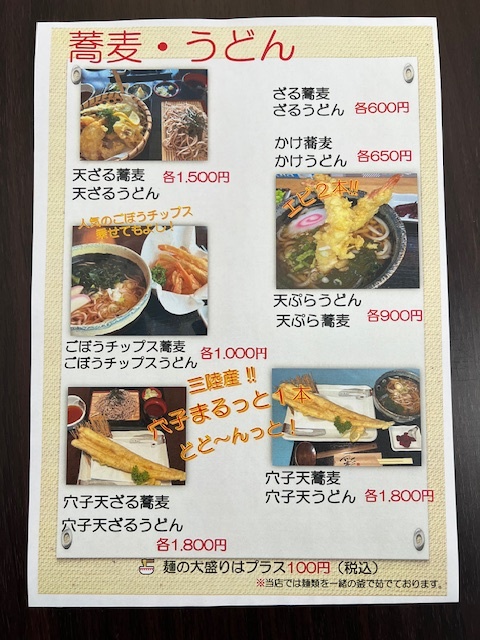 蕎麦・うどん
ざる蕎麦
ざるうどん 各600円
かけ蕎麦
かけうどん 各650円
天ざる蕎麦 各1,500円
天ざるうどん
エビ2本!!
天ぷらうどん
天ぷら蕎麦 各900円
人気のごぼうチップス
乗せてもよし!
ごぼうチップス蕎麦
ごぼうチップスうどん 各1,000円
三陸産!!
穴子まるっと1本
とど〜んっと!
穴子天ざる蕎麦
穴子天ざるうどん
各1,800円
穴子天蕎麦
穴子天うどん 各1,800円
麺の大盛りはプラス100円(税込)
※当店では麺類を一緒の釜で茹でております。